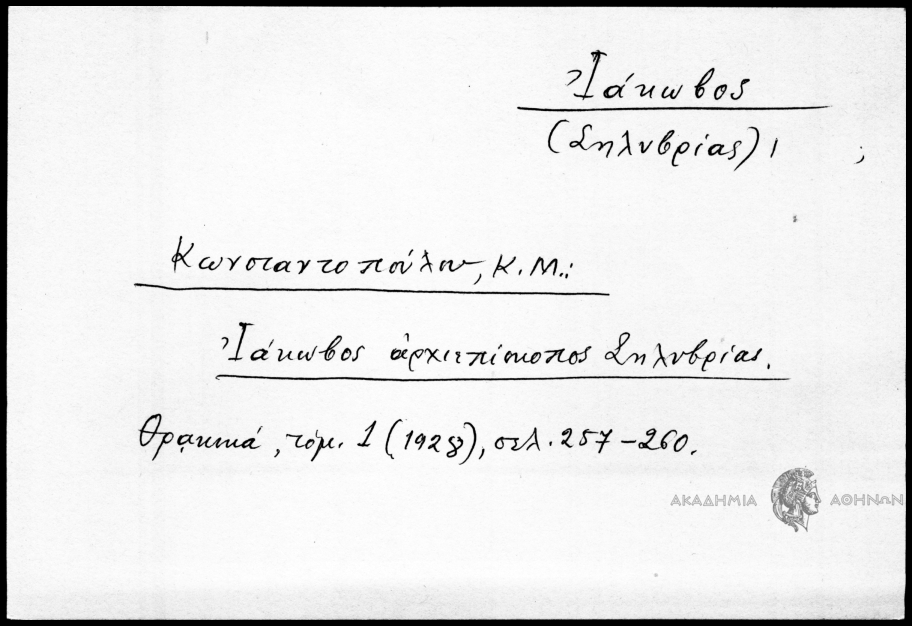 Ἰάκωβος
(Σηλυβρίας) ι ;
Κωνσταντοπούλου, Κ. Μ.:
Ἰάκωβος ἀρχιεπίσκοπος Σηλυβρίας.
Θρᾳκικά, τόμ. 1 (1928), σελ. 257-260.
ΑΚΑΔΗΜΙΑ ΑΘΗΝΩΝ